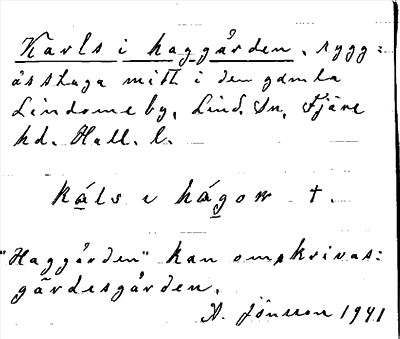 Karls i haggården, rygg=
åsstuga mitt i den gamla
Lindome by, Lind. Sn, Fjäre
hd. Hall. l.
káls i hágow †.
"Haggården" kan omskrivas:
gärdesgården.
A. Jönsson 1941